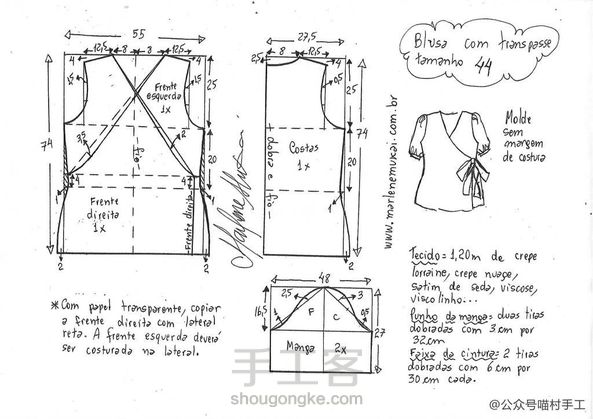 55
12,5 8 8 12,5
4 4
1,5 1,5
25
Frente
esquerda
1x
74
3,5
2
fio
20
4 4
1 1
Frente
direita
1x
Frente direita
2 2
27,5
8 12,5
4
0,5
25
74
Costas
1x
dobra e fio
20
1
2
Marlene Mukai
www.marlenemukai.com.br
Blusa com transpasse
tamanho 44
Molde
sem
margem
de costura
48
2,5 3
16,5
1 0,5
F C
27
Manga 2x
*Com papel transparente, copiar
a frente direita com lateral
reta. A frente esquerda deverá
ser costurada na lateral.
Tecido = 1,20m de crepe
lorraine, crepe nuage,
satim de seda, viscose,
visco linho...
Punho da manga: duas tiras
dobradas com 3 cm por
32cm
Faixa da cintura: 2 tiras
dobradas com 6 cm por
30 cm cada.
手工客
shougongke.com
@公众号喵村手工